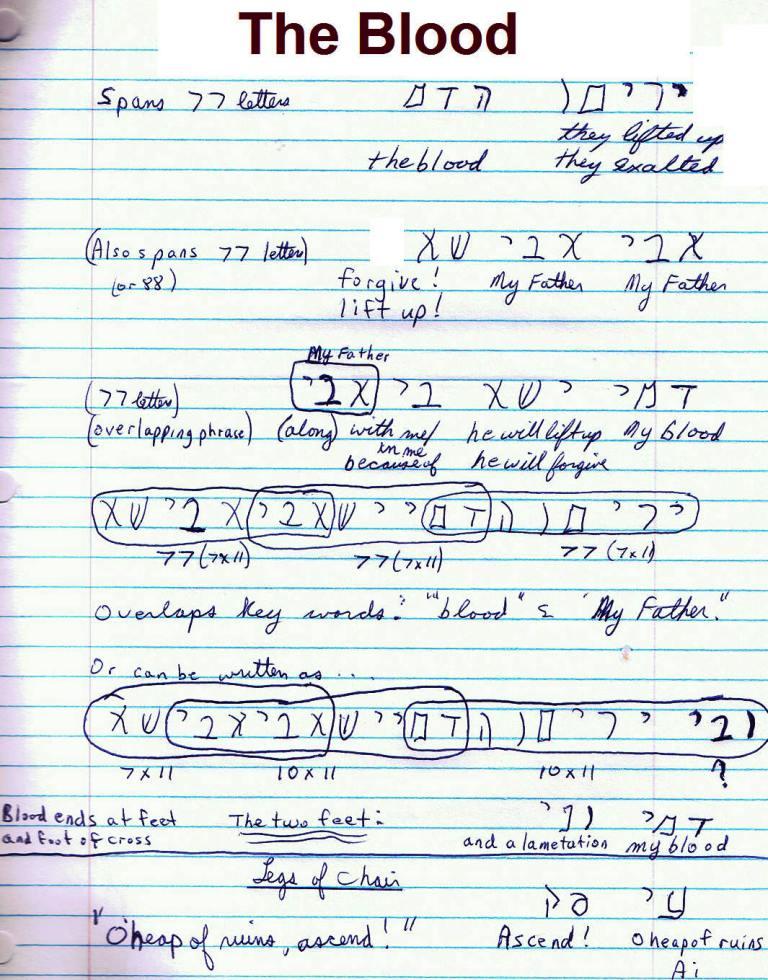 The Blood
Spans 77 letters ירימו הדם
they lifted up
the blood they exalted
(Also spans 77 letters) אבי אבי שא
(or 88) forgive! My Father My Father
lift up!
My Father
(77 letters) דמי ישא בי אבי
(overlapping phrase) (along) with me/ he will lift up My blood
in me
because of he will forgive
ירימו הדם יישאביאבישא
77 (7x11) 77 (7x11) 77 (7x11)
Overlaps key words: "blood" & "My Father."
Or can be written as ...
ובי ירימו הדם יישאביאבישא
7x11 10x11 10x11 ?
Blood ends at feet The two feet: דמי וני
and foot of cross and a lametation my blood
Legs of Chair
עי
"O heap of ruins, ascend!" Ascend! O heap of ruins
Ai